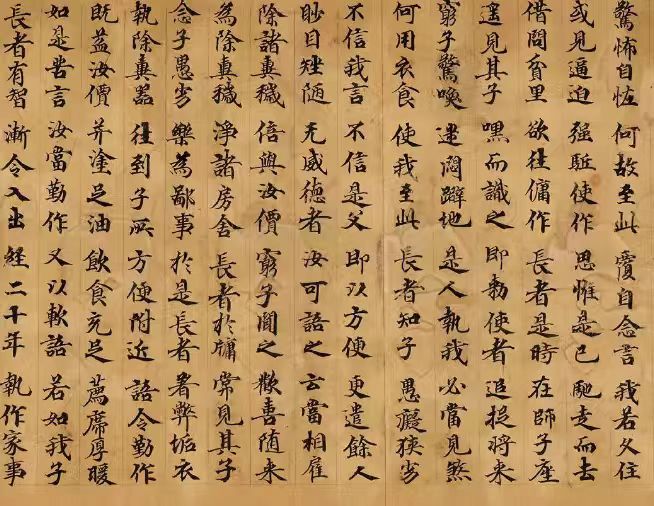 驚怖自恠 何故至此 覆自念言 我若久住
或見逼迫 强駈使作 思惟是已 馳走而去
借問貧里 欲往傭作 長者是時 在師子座
遥見其子 嘿而識之 即勅使者 追捉將来
窮子驚喚 迷悶躃地 是人執我 必當見煞
何用衣食 使我至此 長者知子 愚癡狭劣
不信我言 不信是父 即以方便 更遣餘人
眇目矬陋 无威德者 汝可語之 云當相雇
除諸糞穢 倍與汝價 窮子聞之 歡喜随来
為除糞穢 淨諸房舍 長者於牖 常見其子
念子愚劣 樂為鄙事 於是長者 著弊垢衣
執除糞器 往到子所 方便附近 語令勤作
既益汝價 并塗足油 飲食充足 薦席厚暖
如是苦言 汝當勤作 又以軟語 若如我子
長者有智 漸令入出 經二十年 執作家事